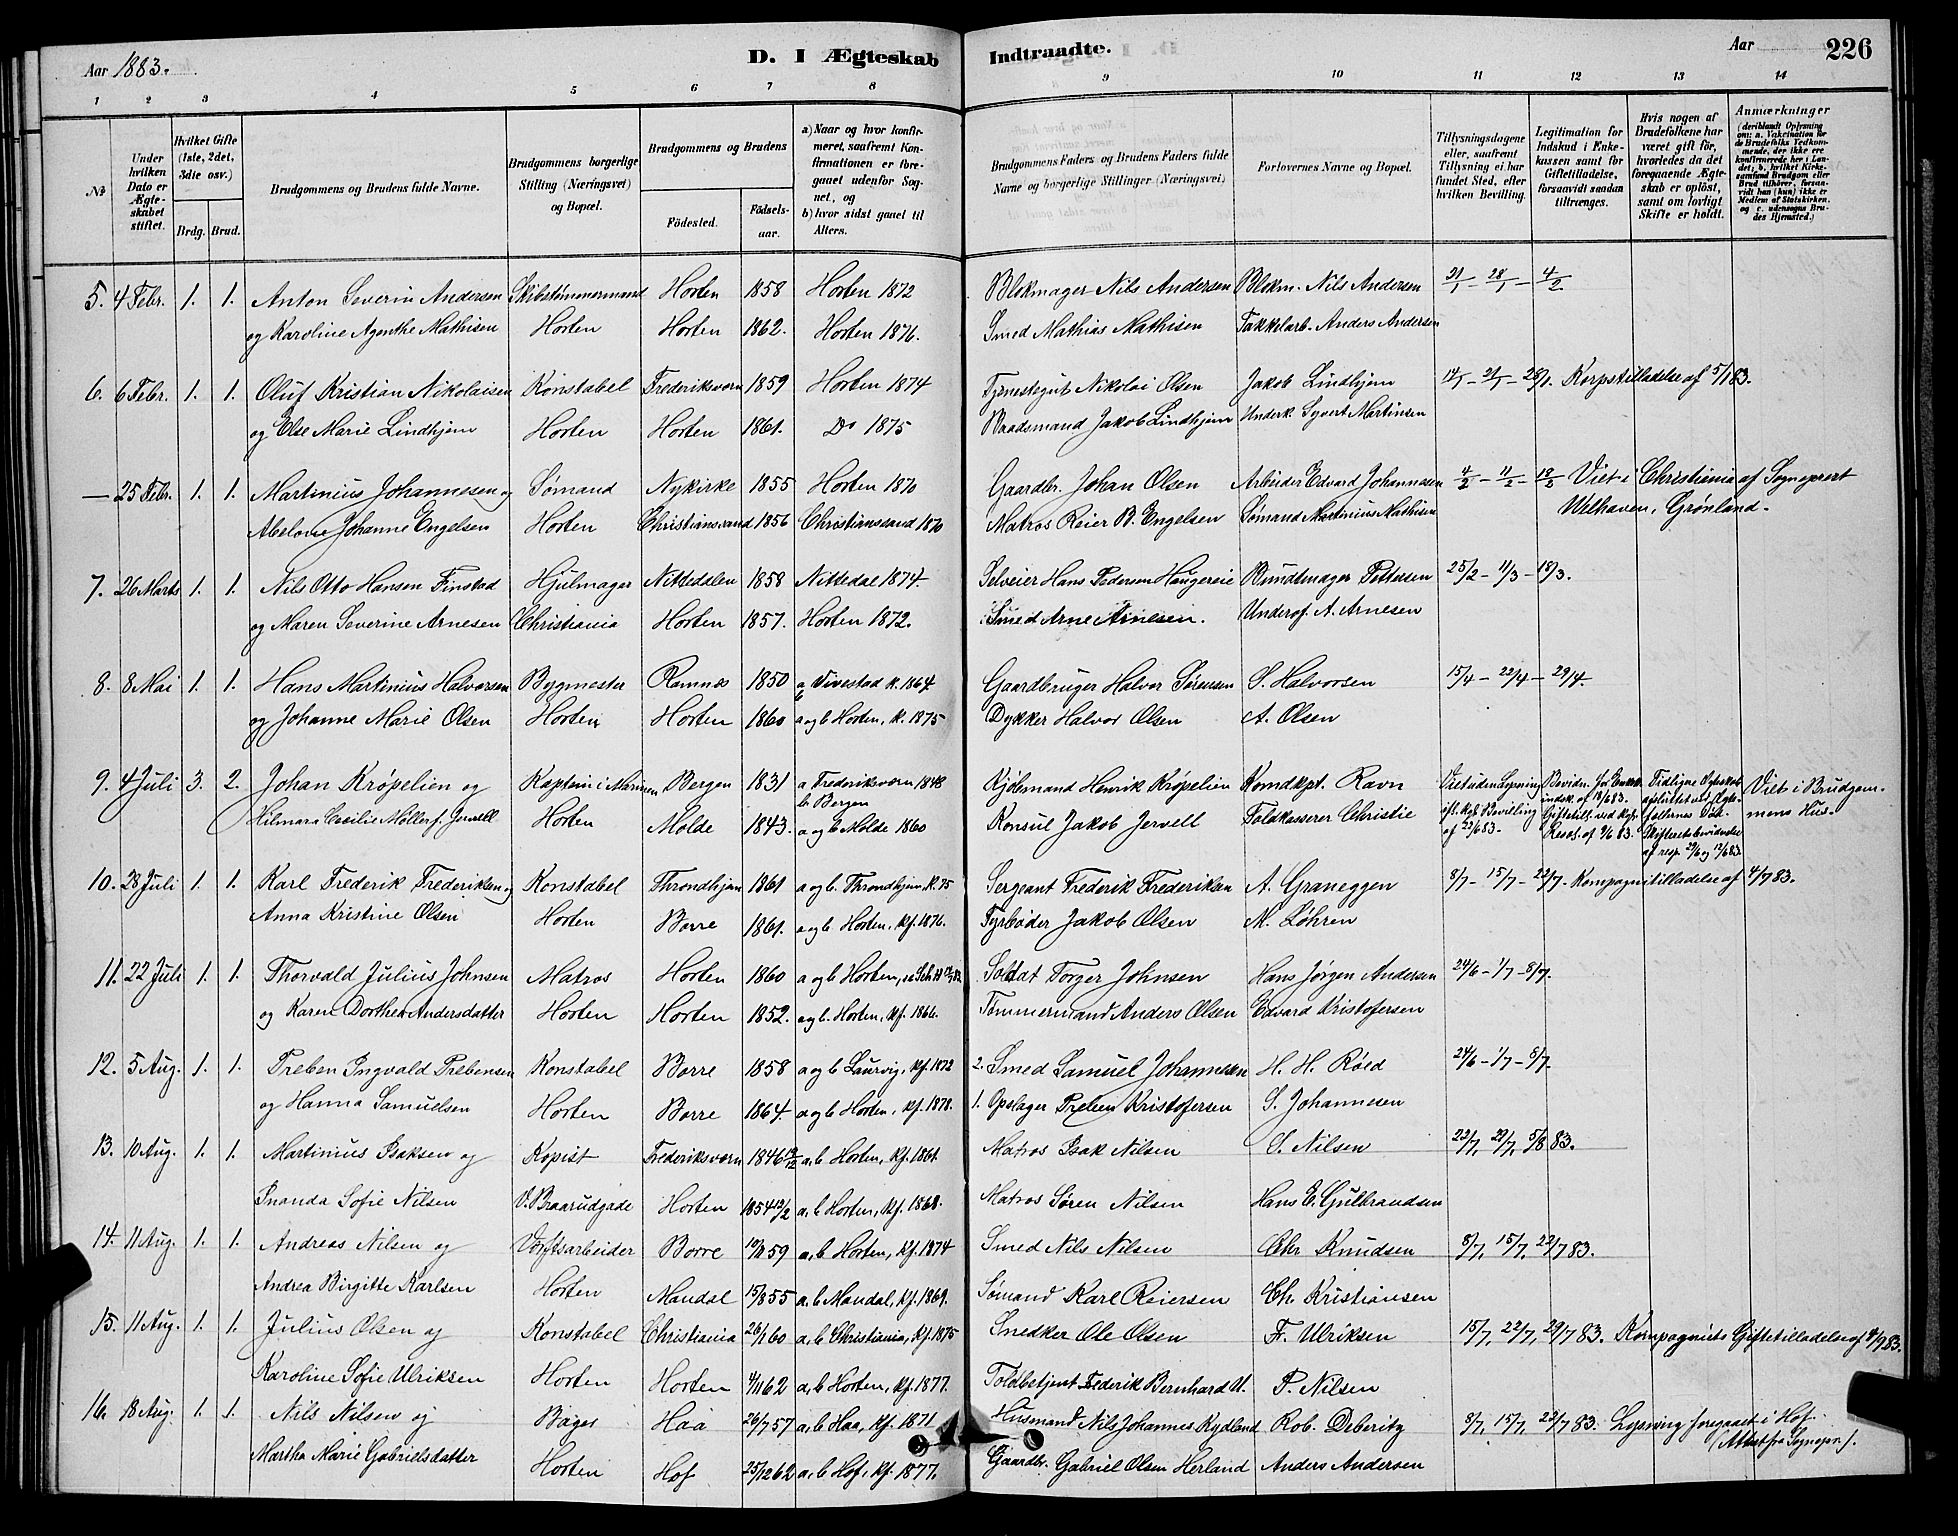 Aar 1883. D. I Ægteskab Indtraadte. Aar 226
1 2 3 4 5 6 7 8 9 10 11 12 13 14
№ Under hvilken Dato er Ægteskabet stiftet. Hvilket Gifte (1ste, 2det, 3die osv.) Brdg. Brud. Brudgommens og Brudens fulde Navne. Brudgommens borgerlige Stilling (Næringsvei) og Bopæl. Brudgommens og Brudens Födested. Födselsaar. a) Naar og hvor konfirmeret, saafremt Konfirmationen er foregaaet udenfor Sognet, og b) hvor sidst gaaet til Alters. Brudgommens Faders og Brudens Faders fulde Navne og borgerlige Stillinger (Næringsvei) Forlovernes Navne og Bopæl. Tillysningsdagene eller, saafremt Tillysning ei har fundet Sted, efter hvilken Bevilling. Legitimation for Indskud i Enkekassen samt for Giftetilladelse, forsaavidt saadan tiltrænges. Hvis nogen af Brudefolkene har været gift för, hvorledes da det foregaaende Ægteskab er oplöst, samt om lovligt Skifte er holdt. Anmærkninger (deriblandt Oplysning om: a. Vakcination for de Brudefolks Vedkommende, der ikke ere konfirmerede her i Landet, b. hvilket Kirkesamfund Brudgom eller Brud tilhörer, forsaavidt han (hun) ikke er Medlem af Statskirken, og c. udensogns Brudes Hjemsted.)
5. 4 Febr. 1. 1. Anton Severin Andersen Skibstømmermand Horten 1858 Horten 1872 Blokmager Nils Andersen Blokm. Nils Andersen 21/1 - 28/1 - 4/2
og Karoline Agenthe Mathisen Horten Horten 1862. Horten 1876. Smed Mathias Mathisen Takkelarb. Anders Andersen
6. 6 Febr. 1. 1. Oluf Kristian Nikolaisen Konstabel Frederiksværn 1859 Horten 1874 Tjenestegut Nikolai Olsen Jakob Lindhjem 14/1 - 21/1 - 28/1. Korpstilladelse af 5/1 83.
og Else Marie Lindhjem Horten Horten 1861. Do 1875 Baadsmand Jakob Lindhjem Underk. Syvert Martinsen
— 25 Febr. 1. 1. Martinius Johannesen og Sømand Nykirke 1855 Horten 1870 Gaardbr. Johan Olsen Arbeider Edvard Johannesen 4/2 - 11/2 - 18/2 Viet i Christiania af Sogneprest
Abelone Johanne Engelsen Horten Christianssand 1856 Christianssand 1870 Matros Reier B. Engelsen Sømand Martinius Mathisen Welhaven, Grønland.
7. 26 Marts 1. 1. Nils Otto Hansen Finstad Hjulmager Nittedalen 1858 Nittedal 1874. Selveier Hans Pedersen Haugereie Bundtmager Pettersen 25/2 - 11/3 - 18/3.
og Maren Severine Arnesen Christiania Horten 1857. Horten 1872. Smed Arne Arnesen. Underof. A. Arnesen
8. 8 Mai 1. 1. Hans Martinius Halvorsen Bygmester Ramnes 1850 a Vivestad k. 1864. Gaardbruger Halvor Sørensen S. Halvorsen 15/4 - 22/4 - 29/4.
og Johanne Marie Olsen Horten Horten 1860 a og b Horten, k. 1875 Dykker Halvor Olsen A. Olsen
9. 4 Juli 3. 2. Johan Krøpelien og Kaptein i Marinen Bergen 1831 a Frederiksværn 1848 b Bergen Kjøbmand Henrik Krøpelien Komdkpt. Ravn Viet uden Lysning eft. kgl. Bevilling af 22/6 83. Bevidn. for Enkek. indsk. af 18/6 83. Giftetill. ved kgl. Resol. af 9/6 83. Tidligere Ægteskab opløst ved Ægtefællernes Død. Skifteretsbevidnelse af resp. 29/6 og 12/6 83. Viet i Brudgommens Hus.
Hilmara Cecilie Møller f. Jervell Horten Molde 1843. a og b Molde 1860 Konsul Jakob Jervell Toldkasserer Christie
10. 28 Juli 1. 1. Karl Frederik Frederiksen og Konstabel Throndhjem 1861 a og b. Throndhjem K. 75 Sergeant Frederik Frederiksen A. Graneggen 8/7 - 15/7 - 22/7. Kompagnitilladelse af 4/7 83.
Anna Kristine Olsen Horten Borre 1861. a og b. Horten, Kf. 1876. Fyrbøder Jakob Olsen M. Løhren
11. 22 Juli 1. 1. Thorvald Julius Johnsen Matros Horten 1860 a og b Horten, Soldat Torger Johnsen Hans Jørgen Andersen 24/6 - 1/7 - 8/7.
og Karen Dorthea Andersdatter Horten Horten 1852. a og b. Horten, Kf. 1866. Tømmermand Anders Olsen Edvard Kristofersen
12. 5 Aug. 1. 1. Preben Ingvald Prebensen Konstabel Borre 1858 a og b Laurvig, Kf. 1872 2. Smed Samuel Johannesen H. H. Røed 24/6 - 1/7 - 8/7.
og Hanna Samuelsen Horten Borre 1864. a og b Horten, Kf. 1878. 1. Opslager Preben Kristofersen S. Johannesen
13. 10 Aug. 1. 1. Martinius Isaksen og Kopist Frederiksværn 1846 19/12 a, b Horten, Kf. 1861. Matros Isak Nilsen S. Nilsen 22/7, 29/7, 5/8 83.
Inanda Sofie Nilsen V. Braarudgade Horten 1854 13/2 a, b Horten, Kf. 1868. Matros Søren Nilsen Hans E. Gulbrandsen
14. 11 Aug. 1. 1. Andreas Nilsen og Værftsarbeider Borre 19/8 59 a, b Horten, Kf. 1874 Smed Nils Nilsen Chr. Knudsen 8/7, 15/7, 22/7 83.
Andrea Birgitte Karlsen Horten Mandal 15/8 55 a, b Mandal, Kf. 1869. Sømand Karl Reiersen Ch. Kristiansen
15. 11 Aug. 1. 1. Julius Olsen og Konstabel Christiania 26/1 60 a, b Christiania, Kf. 1875 Snedker Ole Olsen Fr. Ulriksen 15/7, 22/7, 29/7 83. Kompagniets Giftetilladelse af 4/7 83.
Karoline Sofie Ulriksen Horten Horten 4/11 62 a, b Horten, Kf. 1877. Toldbetjent Frederik Bernhard U. P. Nilsen
16. 18 Aug. 1. 1. Nils Nilsen og Bager Haa 26/7 57 a, b Haa, Kf. 1871. Husmand Nils Johannes Rydland Rob. Deberitz 8/7, 15/7, 22/7 83. Lysning foregaaet i Hof
Martha Marie Gabrielsdatter Horten Hof 25/12 62 a, b Hof, Kf. 1877. Gaardbr. Gabriel Olsen Herland Anders Andersen (Attest fra Sognepr.).